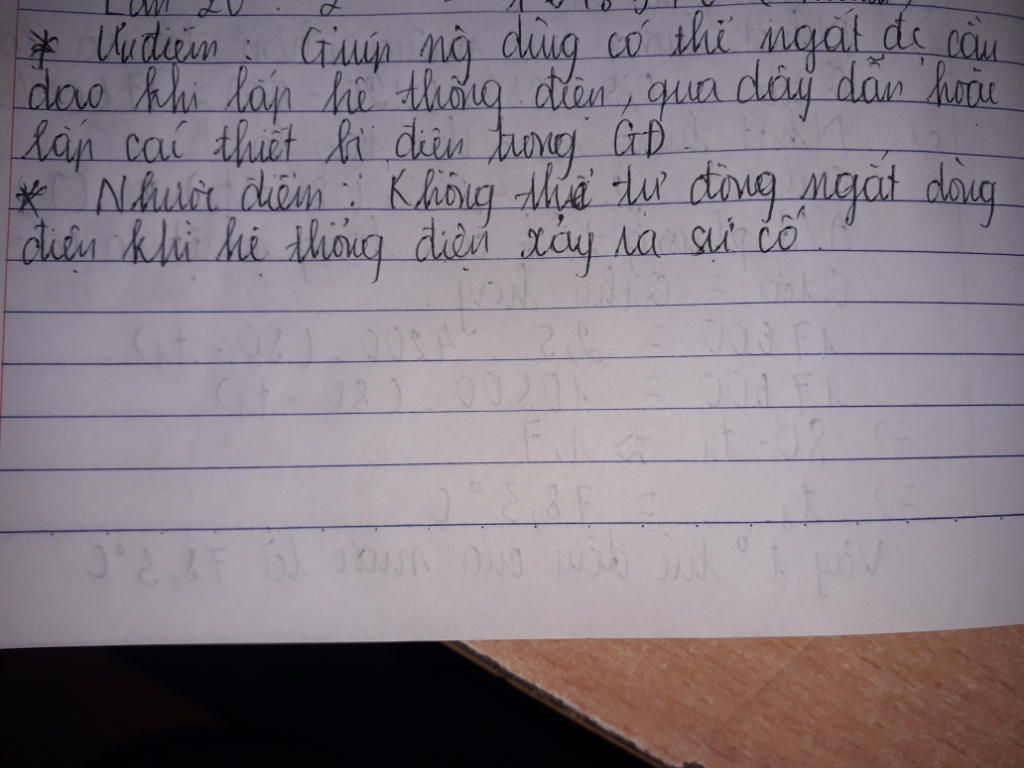 * Ưu điểm : Giúp ng dùng có thể ngắt đc cầu
dao khi lắp hệ thống điện, qua dây dẫn hoặc
lắp caí thiết bị điện trong GĐ.
* Nhược điểm : Không thể tự động ngắt dòng
điện khi hệ thống điện xảy ra sự cố.